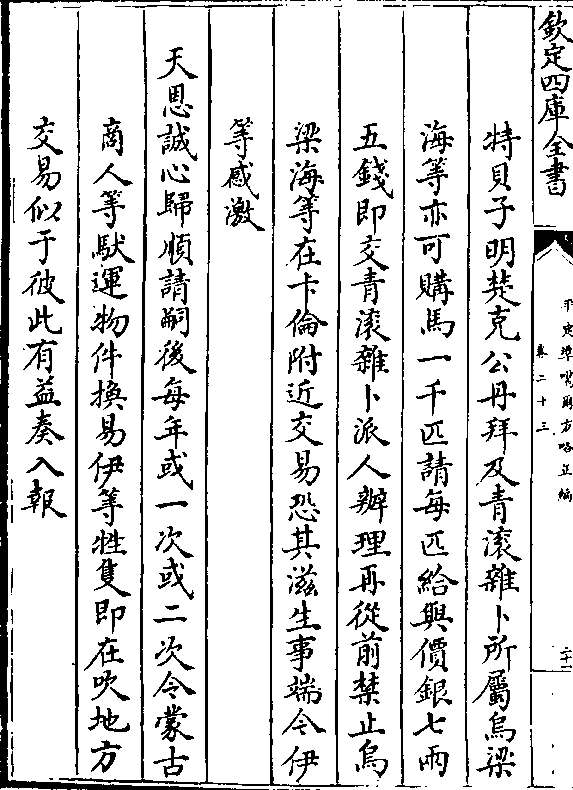 欽定四庫全書
平定準噶爾方略正編
卷二十三
二十一
特貝子明楚克公丹拜及青滚雜卜所屬烏梁
海等亦可購馬一千匹請每匹給與價銀七兩
五錢即交青滚雜卜派人辦理再從前禁止烏
梁海等在卡倫附近交易恐其滋生事端今伊
等感激
天恩誠心歸順請嗣後每年或一次或二次令蒙古
商人等馱運物件換易伊等牲隻即在吹地方
交易似于彼此有益奏入報